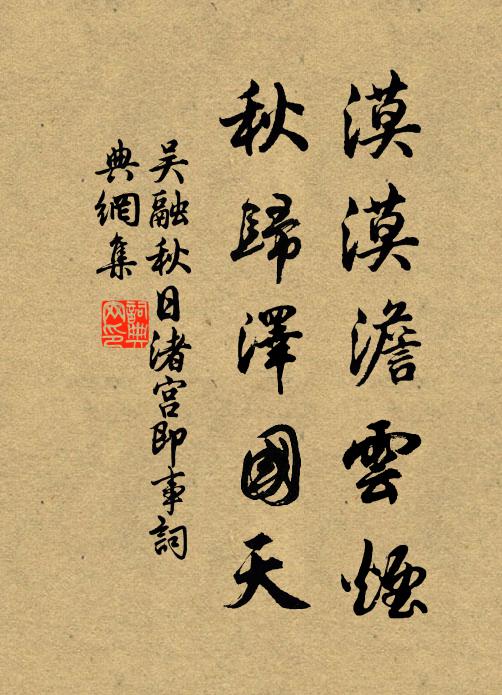 漠漠澹雲煙
秋歸澤國天
吴融秋日渚宫即事詞
典網集
詞典網印